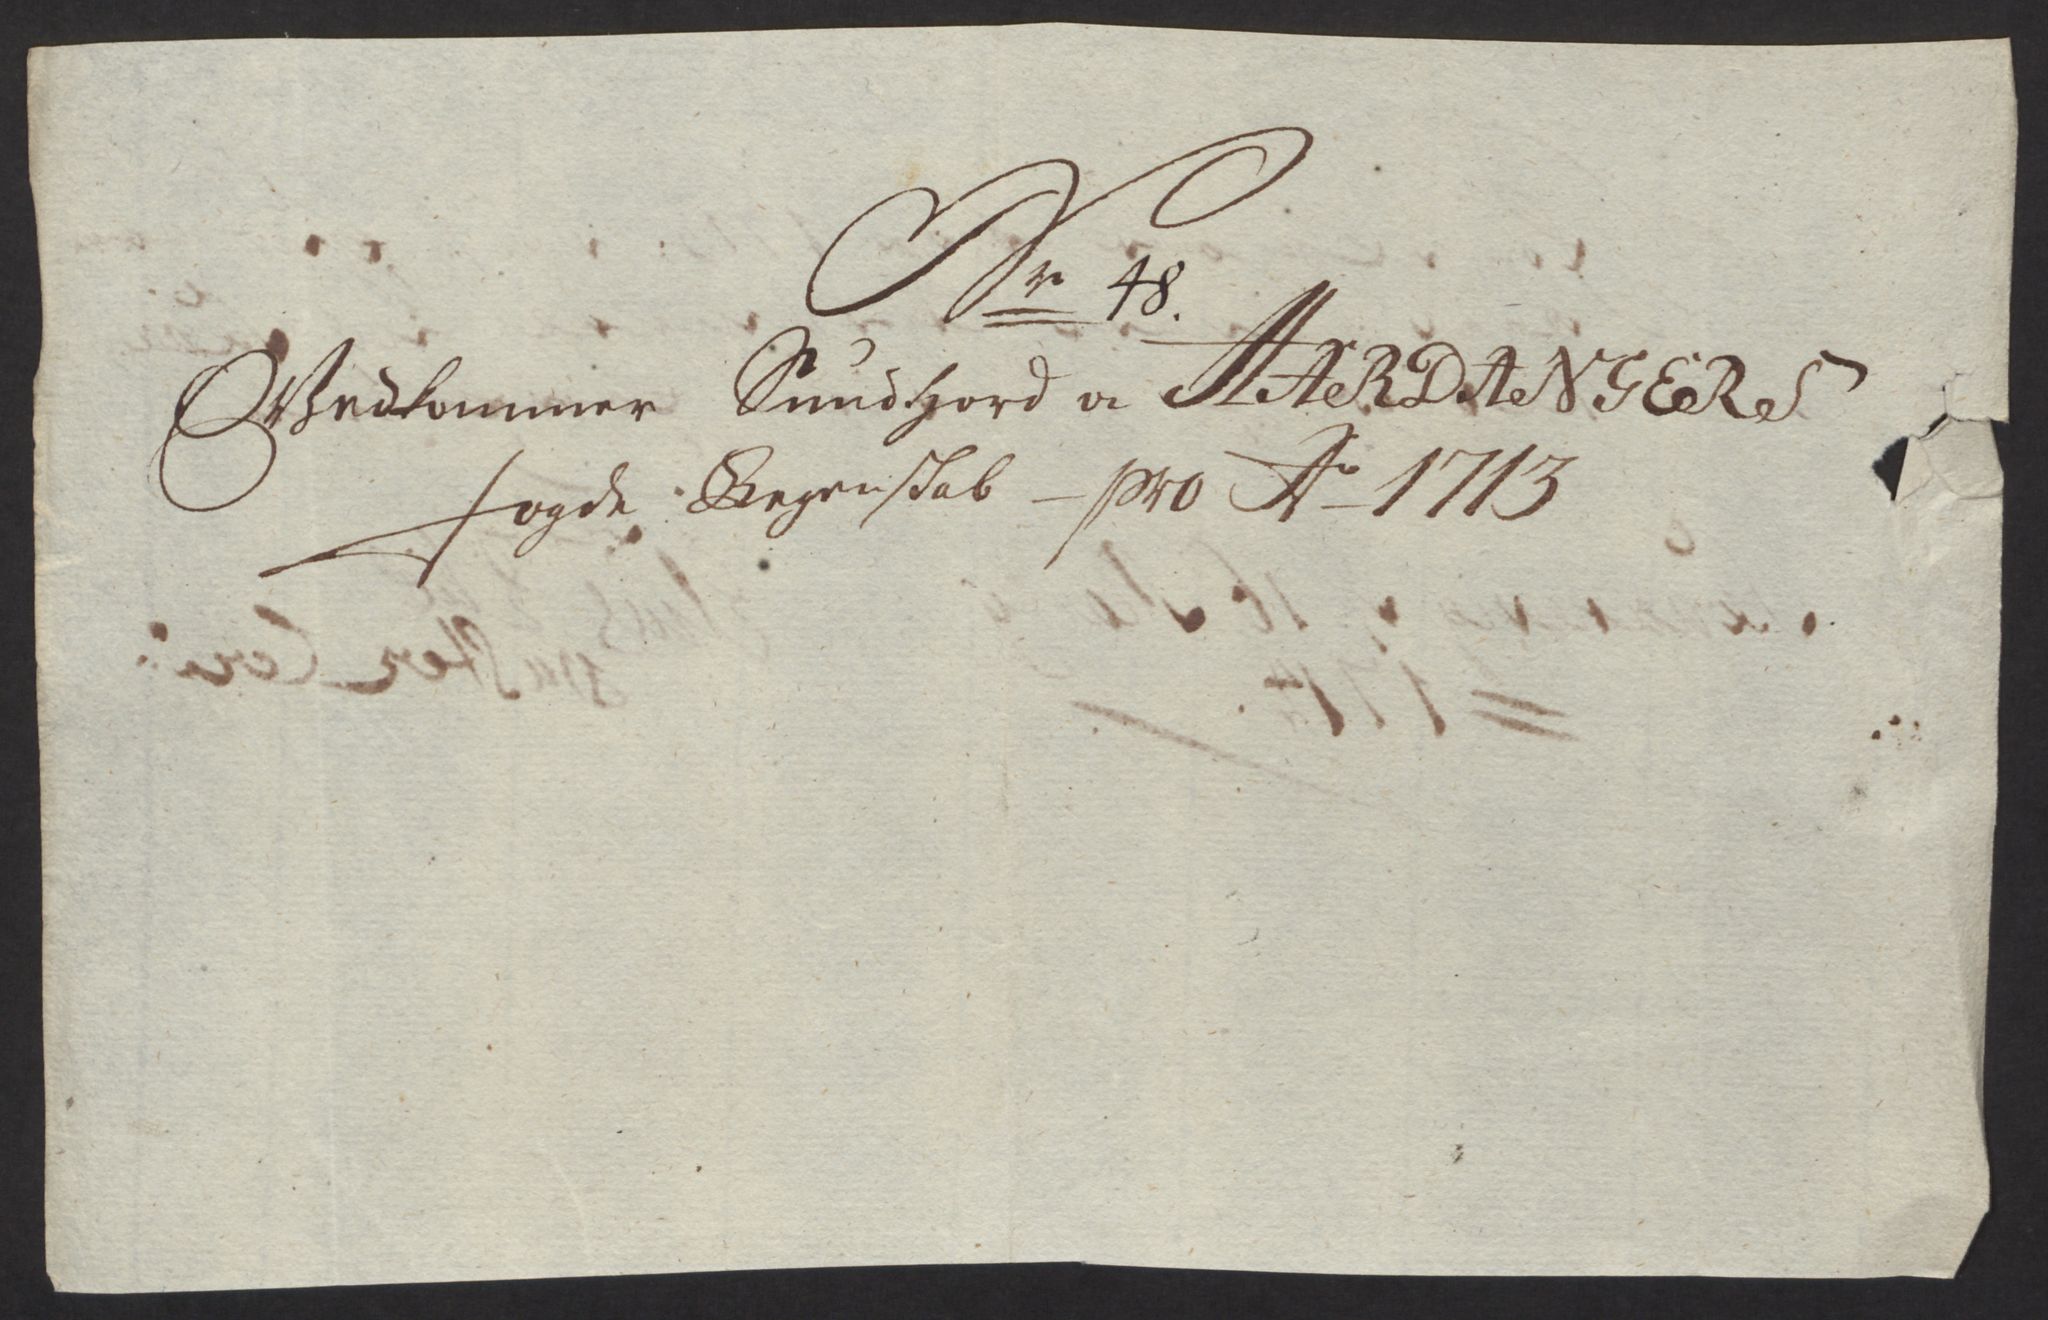 Nr 48.
Vedkommer Sundhord og HARDANGERS
fogde Regenskab – pro Ao 1713